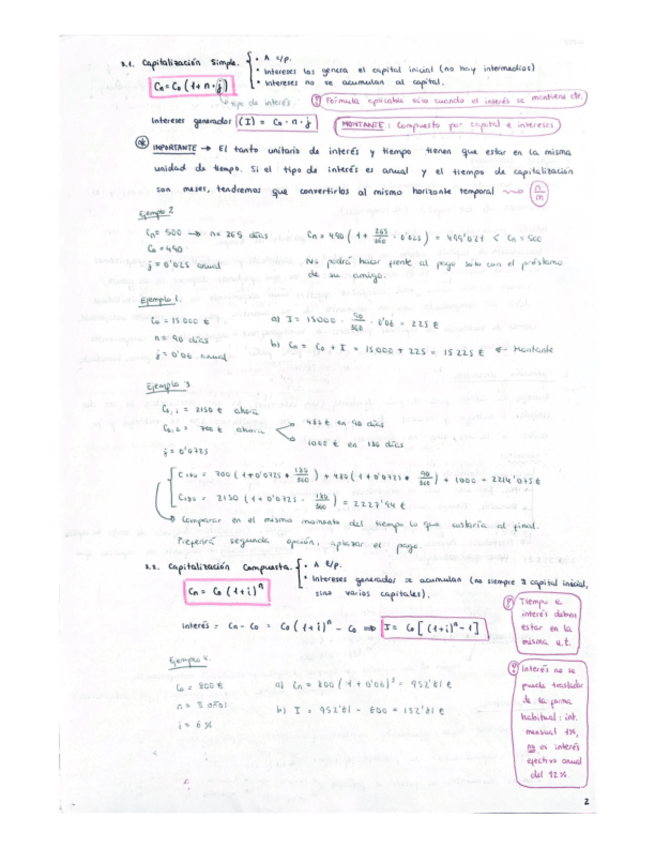 2.1. Capitalización Simple.
• A c/p.
• Intereses los genera el capital inicial (no hay intermedios)
• Intereses no se acumulan al capital.
Cn = C0 (1 + n · j)
tipo de interés
Fórmula aplicable sólo cuando el interés se mantiene cte.
Intereses generados (I) = C0 · n · j
MONTANTE: Compuesto por capital e intereses
IMPORTANTE → El tanto unitario de interés y tiempo tienen que estar en la misma
unidad de tiempo. Si el tipo de interés es anual y el tiempo de capitalización
son meses, tendremos que convertirlos al mismo horizonte temporal n/m
Ejemplo 2
Cn = 500 → n = 265 días
Cn = 490 (1 + 265/360 · 0'025) = 499'021 < Cn = 500
C0 = 490
j = 0'025 anual
No podrá hacer frente al pago sólo con el préstamo
de su amigo.
Ejemplo 1.
C0 = 15000 €
a) I = 15000 · 90/360 · 0'06 = 225 €
n = 90 días
b) Cn = C0 + I = 15000 + 225 = 15225 € ← Montante
j = 0'06 anual
Ejemplo 3
C0,1 = 2150 € ahora
C0,2 = 700 € ahora
480 € en 90 días
1000 € en 180 días
j = 0'0725
C180 = 700 (1 + 0'0725 · 180/360) + 480 (1 + 0'0725 · 90/360) + 1000 = 2214'075 €
C180 = 2150 (1 + 0'0725 · 180/360) = 2227'94 €
Comparar en el mismo momento del tiempo lo que costaría al final.
Preferirá segunda opción, aplazar el pago.
2.2. Capitalización Compuesta.
• A l/p.
• Intereses generados se acumulan (no siempre ∃ capital inicial,
sino varios capitales).
Cn = C0 (1+i)^n
Interés = Cn - C0 = C0 (1+i)^n - C0 ⇒ I = C0 [(1+i)^n - 1]
Tiempo e
interés deben
estar en la
misma u.t.
Ejemplo 4.
C0 = 800 €
a) Cn = 800 (1 + 0'06)^3 = 952'81 €
n = 3 años
b) I = 952'81 - 800 = 152'81 €
i = 6%
Interés no se
puede trasladar
de la forma
habitual: int.
mensual 1%,
no es interés
efectivo anual
del 12%.
2